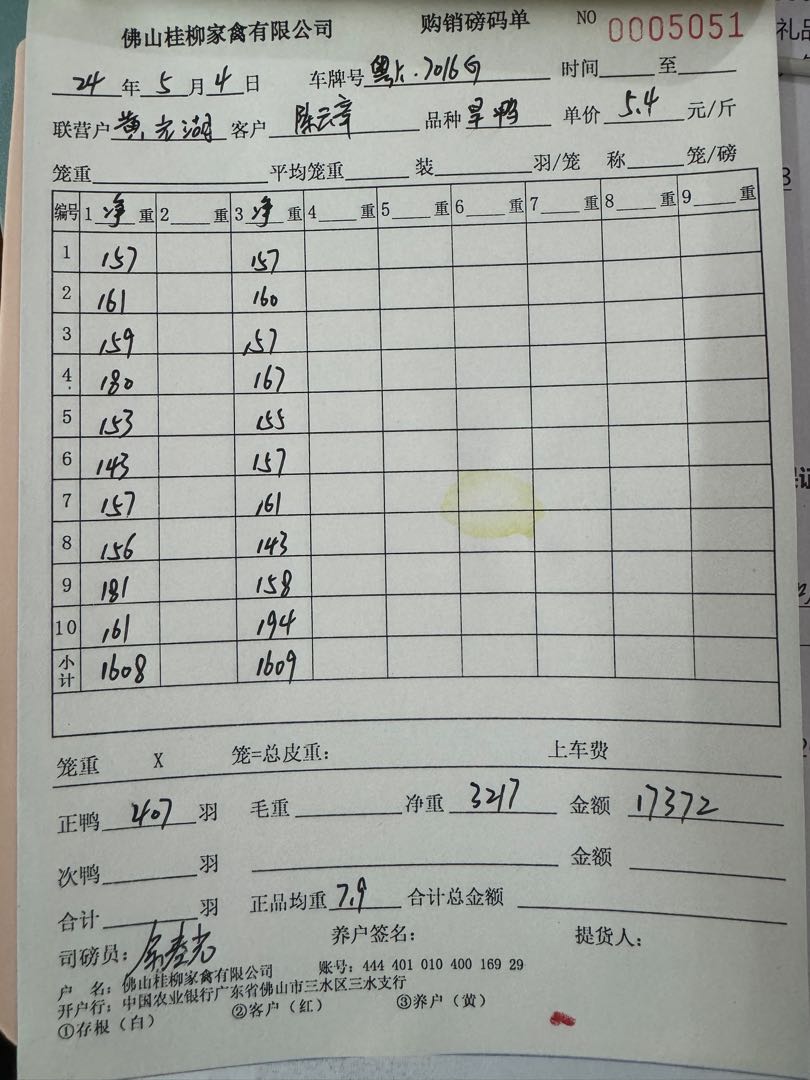 佛山桂柳家禽有限公司 购销磅码单 NO 0005051
24年5月4日 车牌号 7016G 时间 至
联营户 黄 湖 客户 陈云章 品种 旱鸭 单价 5.4 元/斤
笼重 平均笼重 装 羽/笼 称 笼/磅
编号 1 净 重 2 重 3 净 重 4 重 5 重 6 重 7 重 8 重 9 重
1 157 157
2 161 160
3 159 157
4 180 167
5 153 155
6 143 157
7 157 161
8 156 143
9 181 158
10 161 194
小计 1608 1609
笼重 X 笼=总皮重: 上车费
正鸭 407 羽 毛重 净重 3217 金额 17372
次鸭 羽 金额
合计 羽 正品均重 7.9 合计总金额
司磅员: 养户签名: 提货人:
户 名: 佛山桂柳家禽有限公司 账号: 444 401 010 400 169 29
开户行: 中国农业银行广东省佛山市三水区三水支行
①存根(白) ②客户(红) ③养户(黄)
礼品